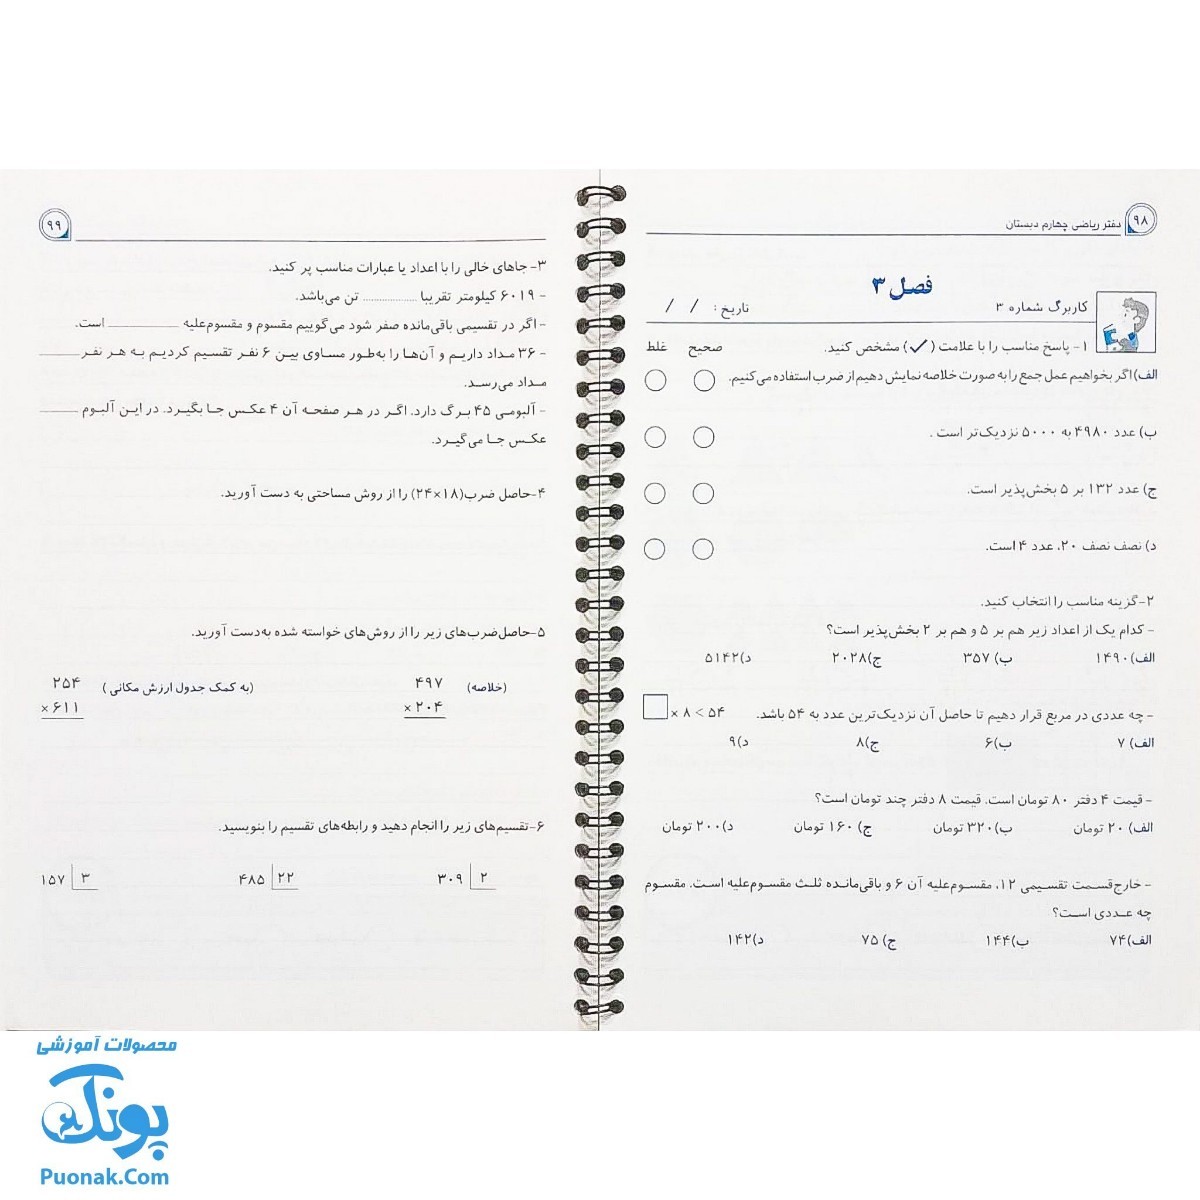 ۹۸
دفتر ریاضی چهارم دبستان
فصل ۳
کاربرگ شماره ۳ تاریخ: / /
۱- پاسخ مناسب را با علامت (✓) مشخص کنید. صحیح غلط
الف) اگر بخواهیم عمل جمع را به صورت خلاصه نمایش دهیم از ضرب استفاده می‌کنیم.
ب) عدد ۴۹۸۰ به ۵۰۰۰ نزدیک‌تر است .
ج) عدد ۱۳۲ بر ۵ بخش‌پذیر است.
د) نصف نصف ۲۰، عدد ۴ است.
۲-گزینه مناسب را انتخاب کنید.
- کدام یک از اعداد زیر هم بر ۵ و هم بر ۲ بخش‌پذیر است؟
الف)۱۴۹۰ ب) ۳۵۷ ج)۲۰۲۸ د)۵۱۴۲
- چه عددی در مربع قرار دهیم تا حاصل آن نزدیک‌ترین عدد به ۵۴ باشد. □ × ۸ < ۵۴
الف) ۷ ب)۶ ج)۸ د)۹
- قیمت ۴ دفتر ۸۰ تومان است. قیمت ۸ دفتر چند تومان است؟
الف) ۲۰ تومان ب)۳۲۰ تومان ج) ۱۶۰ تومان د)۲۰۰ تومان
- خارج‌قسمت تقسیمی ۱۲، مقسوم‌علیه آن ۶ و باقی‌مانده ثلث مقسوم‌علیه است. مقسوم
چه عددی است؟
الف)۷۴ ب)۱۴۴ ج) ۷۵ د)۱۴۲
۹۹
۳- جاهای خالی را با اعداد یا عبارات مناسب پر کنید.
- ۶۰۱۹ کیلومتر تقریبا .................... تن می‌باشد.
- اگر در تقسیمی باقی‌مانده صفر شود می‌گوییم مقسوم و مقسوم‌علیه ____________ است.
- ۳۶ مداد داریم و آن‌ها را به‌طور مساوی بین ۶ نفر تقسیم کردیم به هر نفر ______
مداد می‌رسد.
- آلبومی ۴۵ برگ دارد. اگر در هر صفحه آن ۴ عکس جا بگیرد. در این آلبوم ______
عکس جا می‌گیرد.
۴-حاصل ضرب(۱۸×۲۴) را از روش مساحتی به دست آورید.
۵-حاصل‌ضرب‌های زیر را از روش‌های خواسته شده به‌دست آورید.
(خلاصه) ۴۹۷ (به کمک جدول ارزش مکانی ) ۲۵۴
× ۲۰۴ × ۶۱۱
۶-تقسیم‌های زیر را انجام دهید و رابطه‌های تقسیم را بنویسید.
۳۰۹ | ۲ ۴۸۵ | ۲۲ ۱۵۷ | ۳
محصولات آموزشی
پونک
Puonak.Com